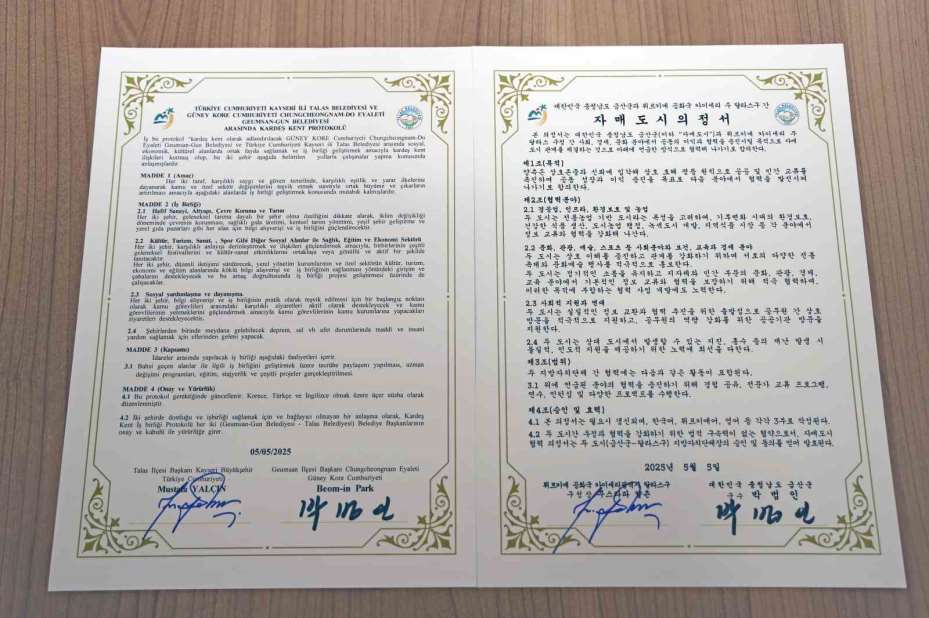 TÜRKİYE CUMHURİYETİ KAYSERİ İLİ TALAS BELEDİYESİ VE
GÜNEY KORE CUMHURİYETİ CHUNGCHEONGNAM-DO EYALETİ
GEUMSAN-GUN BELEDİYESİ
ARASINDA KARDEŞ KENT PROTOKOLÜ
İş bu protokol "kardeş kent olarak adlandırılacak GÜNEY KORE Cumhuriyeti Chungcheongnam-Do
Eyaleti Geumsan-Gun Belediyesi ve Türkiye Cumhuriyeti Kayseri ili Talas Belediyesi arasında sosyal,
ekonomik, kültürel alanlarda ortak fayda sağlamak ve iş birliği geliştirmek amacıyla kardeş kent
ilişkileri kurmuş olup, bu iki şehir aşağıda belirtilen yollarla çalışmalar yapma konusunda
anlaşmışlardır.
MADDE 1 (Amaç)
Her iki taraf, karşılıklı saygı ve güven temelinde, karşılıklı eşitlik ve yarar ilkelerine
dayanarak kamu ve özel sektör değişimlerini teşvik etmek suretiyle ortak büyüme ve çıkarların
artırılması amacıyla aşağıdaki alanlarda iş birliği geliştirmek konusunda mutabık kalmışlardır.
MADDE 2 (İş Birliği)
2.1 Hafif Sanayi, Altyapı, Çevre Koruma ve Tarım
Her iki şehir, geleneksel tarıma dayalı bir şehir olma özelliğini dikkate alarak, iklim değişikliği
döneminde çevrenin korunması, sağlıklı gıda üretimi, kentsel tarım yönetimi, yeşil şehir geliştirme ve
yerel gıda pazarları gibi her alan için bilgi alışverişi ve iş birliğini güçlendirecektir.
2.2 Kültür, Turizm, Sanat, , Spor Gibi Diğer Sosyal Alanlar ile Sağlık, Eğitim ve Ekonomi Sektörü
Her iki şehir, karşılıklı anlayışı derinleştirmek ve ilişkileri güçlendirmek amacıyla, birbirlerinin çeşitli
geleneksel festivallerini ve kültür-sanat etkinliklerini ortaklaşa veya gönüllü ve aktif bir şekilde
tanıtacaktır.
Her iki şehir, düzenli iletişimi sürdürecek, yerel yönetim kurumlarının ve özel sektörün kültür, turizm,
ekonomi ve eğitim alanlarında köklü bilgi alışverişi ve iş birliğinin sağlanması yönündeki girişim ve
çabalarını destekleyecek ve bu amaç doğrultusunda iş birliği projesi geliştirilmesi üzerinde de
çalışacaklar.
2.3 Sosyal yardımlaşma ve dayanışma
Her iki şehir, bilgi alışverişi ve iş birliğini pratik olarak teşvik edilmesi için bir başlangıç noktası
olarak kamu görevlileri arasındaki karşılıklı ziyaretleri aktif olarak destekleyecek ve kamu
görevlilerinin yeteneklerini güçlendirmek amacıyla kamu görevlilerinin kamu kurumlarına yapacakları
ziyaretleri destekleyecektir.
2.4 Şehirlerden birinde meydana gelebilecek deprem, sel vb afet durumlarında maddi ve insani
yardım sağlamak için ellerinden geleni yapacak.
MADDE 3 (Kapsamı)
İdareler arasında yapılacak iş birliği aşağıdaki faaliyetleri içerir.
3.1 Bahsi geçen alanlar ile ilgili iş birliğini geliştirmek üzere tecrübe paylaşımı yapılması, uzman
değişimi programları, eğitim, stajyerlik ve çeşitli projeler gerçekleştirilmesi.
MADDE 4 (Onay ve Yürürlük)
4.1 Bu protokol gerektiğinde güncellenir. Korece, Türkçe ve İngilizce olmak üzere üçer nüsha olarak
düzenlenmiştir.
4.2 İki şehirde dostluğu ve işbirliği sağlamak için ve bağlayıcı olmayan bir anlaşma olarak, Kardeş
Kent İş Birliği Protokolü her iki (Geumsan-Gun Belediyesi - Talas Belediyesi) Belediye Başkanlarının
onay ve kabulü ile yürürlüğe girer.
05/05/2025
Talas İlçesi Başkanı Kayseri Büyükşehir
Türkiye Cumhuriyeti
Mustafa YALÇIN
Geumsan İlçesi Başkanı Chungcheongnam Eyaleti
Güney Kore Cumhuriyeti
Beom-in Park
박 범 인
대한민국 충청남도 금산군과 튀르키예 공화국 카이세리 주 탈라스구 간
자 매 도 시 의 정 서
본 의정서는 대한민국 충청남도 금산군(이하 "자매도시")과 튀르키예 카이세리 주
탈라스 구 간 사회, 경제, 문화 분야에서 공동의 이익과 협력을 증진시킬 목적으로 자매
도시 관계를 체결하는 것으로 아래에 언급한 방식으로 협력해 나가기로 합의한다.
제1조(목적)
양측은 상호존중과 신뢰에 입각해 상호 호혜 평등 원칙으로 공공 및 민간 교류를
촉진하여 공동 성장과 이익 증진을 목표로 다음 분야에서 협력을 발전시켜
나가기로 합의한다.
제2조(협력분야)
2.1 경공업, 인프라, 환경보호 및 농업
두 도시는 전통농업 기반 도시라는 특성을 고려하여, 기후변화 시대의 환경보호,
건강한 식품 생산, 도시농업 경영, 녹색도시 개발, 지역식품 시장 등 각 분야에서
정보 교류와 협력을 강화해 나간다.
2.2 문화, 관광, 예술, 스포츠 등 사회분야와 보건, 교육과 경제 분야
두 도시는 상호 이해를 증진하고 관계를 강화하기 위하여 서로의 다양한 전통
축제와 문화예술 행사를 적극적으로 홍보한다.
두 도시는 정기적인 소통을 유지하고 지자체와 민간 부문의 문화, 관광, 경제,
교육 분야에서 기본적인 정보 교류와 협력을 보장하기 위해 적극 협력하며,
이러한 목적에 부합하는 협력 사업 개발에도 노력한다.
2.3 사회적 지원과 연대
두 도시는 실질적인 정보 교환과 협력 추진을 위한 출발점으로 공무원 간 상호
방문을 적극적으로 지원하고, 공무원의 역량 강화를 위한 공공기관 방문을
지원한다.
2.4 두 도시는 상대 도시에서 발생할 수 있는 지진, 홍수 등의 재난 발생 시
물질적, 인도적 지원을 제공하기 위한 노력에 최선을 다한다.
제3조(범위)
두 지방자치단체 간 협력에는 다음과 같은 활동이 포함된다.
3.1 위에 언급된 분야의 협력을 증진하기 위해 경험 공유, 전문가 교류 프로그램,
연수, 인턴십 및 다양한 프로젝트를 수행한다.
제4조(승인 및 효력)
4.1 본 의정서는 필요시 갱신되며, 한국어, 튀르키예어, 영어 등 각각 3부로 작성된다.
4.2 두 도시간 우정과 협력을 강화하기 위한 법적 구속력이 없는 협약으로서, 자매도시
협력 의정서는 두 도시(금산군-탈라스구) 지방자치단체장의 승인 및 동의를 얻어 발효된다.
2025년 5월 5일
튀르키예 공화국 카이세리광역시 탈라스구
구청장
대한민국 충청남도 금산군
군수 박 범 인
박 범 인